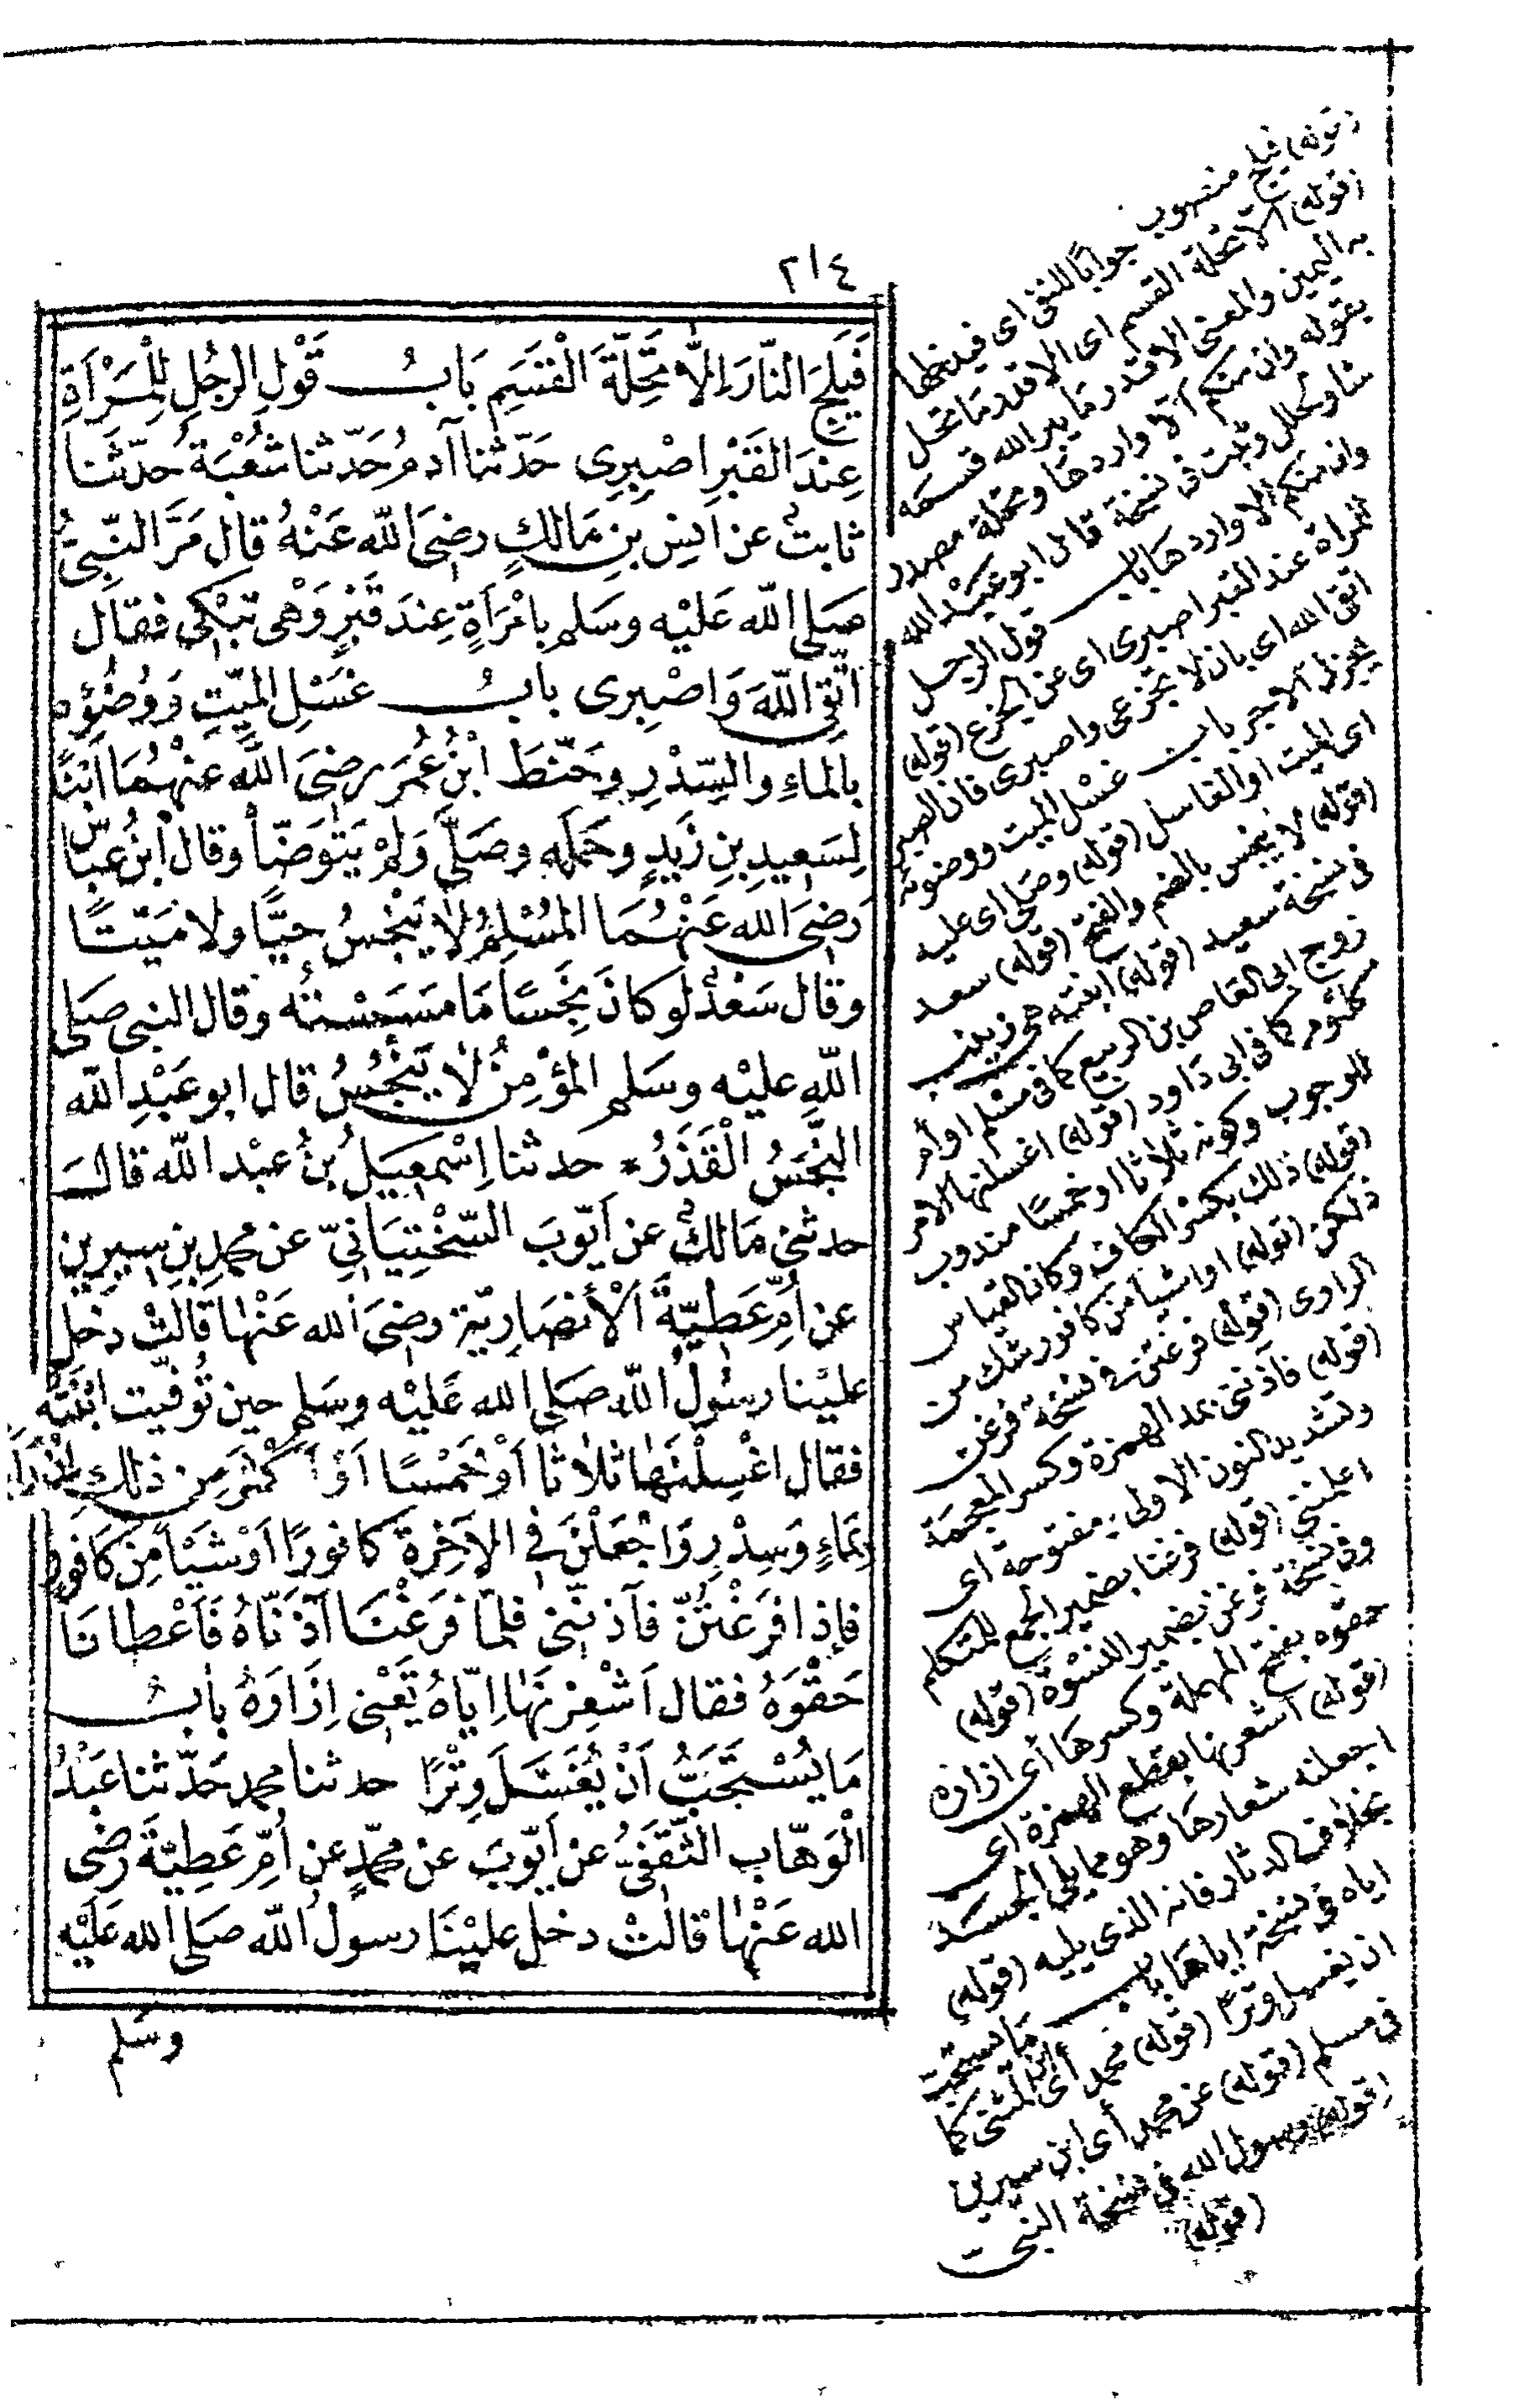 ٢١٤
فَيَلِجَ النَّارَ اِلَّا تَحِلَّةَ الْقَسَمِ بَابُ قَوْلِ الرَّجُلِ لِلْمَرْأَةِ
عِنْدَ الْقَبْرِ اصْبِرِى حَدَّثنا آدمُ حَدَّثنا شُعْبَةُ حَدَّثَنا
ثابتٌ عن اَنَسِ بنِ مَالكٍ رضىَ اللّٰه عَنْهُ قال مَرَّ النَّبِىُّ
صَلى اللّٰه عَلَيْه وسَلم بامْرَاَةٍ عِندَ قَبْرٍ وَهْىَ تَبْكى فقال
اتَّقِى اللّٰهَ وَاصْبِرِى بابُ غَسْلِ المَيّتِ وَوُضُؤُه
بالماءِ والسِّدْرِ وحَنَّطَ ابْنُ عُمَرَ رضىَ اللّٰه عنْهُمَا ابْنًا
لِسَعِيدِ بنِ زَيْدٍ وحَمَلَه وصَلَّى وَلمْ يَتَوَضّأ وقال ابْنُ عبّاس
رَضىَ الله عَنْهُمَا المُسْلِمُ لاَ يَنْجُسُ حيًّا ولا مَيّتًا
وقال سَعْدٌ لَو كانَ نَجِسًا مَا مَسَسْتُه وقال النبى صَلى
اللّٰه عليْه وسَلم المؤْمِنُ لاَ يَنْجُسُ قال ابو عَبْدِ اللّٰه
النَّجَسُ الْقَذَرُ * حدثنا اِسْمٰعيلُ بنُ عبْد اللّٰه قالَ
حدثنى مَالكٌ عن اَيّوبَ السّخْتِيَانىّ عن محمدِ بنِ سِيرين
عن اُمِّ عَطِيّةَ اَلْأَنْصَارِيّة رضىَ الله عَنْهَا قَالَتْ دخل
عليْنا رسُولُ اللّٰه صَلى الله عَليْه وسَلم حين تُوُفّيت ابْنَتُه
فقال اغْسِلْنَهَا ثلاثا اَوْ خَمْسًا اَوْ اَكْثَرَ مِن ذلكِ اِنْ رَاَيْتُنَّ
بمَاءٍ وَسِدْرٍ وَاجْعَلْنَ فى الآخِرَة كافورًا اَوْ شَيْأ مِنْ كَافورٍ
فاِذا فَرَغْتُنَّ فآذِنَّنى فلَمّا فَرَغْنَا آذَنّاهُ فَاَعْطانَا
حَقْوَهُ فقال اَشْعِرْنَهَا اِيّاهُ تَعْنى اِزَارَهُ بابُ
مَا يُسْتَحَبُّ اَنْ يُغْسَلَ وِتْرًا حدثنا محمد حَدّثنا عَبْدُ
الْوَهّاب الثَّقَفىُّ عن اَيّوبَ عنْ محمّدٍ عن اُمِّ عَطِيّةَ رضى
الله عَنْها قالتْ دخل عليْنَا رسولُ اللّٰه صَلى الله عَليْه
وسَلم
(قوله) فيلج منصوب جوابًا للنفى اى فيدخلها
(قوله) الا تحلة القسم اى الا قدر ما تحل
به اليمين والمعنى الا قدر ما يبر الله قسمه
بقوله وان منكم الا واردها وتحلة مصدر
وثبت فى نسخة قال ابو عبْد الله
وان منكم الا واردها باب قول الرجل
للمراة عند القبر اصبرى اى عن الجزع (قوله)
اتقى الله اى بان لا تجزعى واصبرى فان الصبر
يجزل الاجر باب غسْل الميت ووضوئه
اى الميت او الغاسل (قوله) وصلى اى عليه
(قوله) لا ينجس بالضم والفتح (قوله) سعد
فى نسخة سعيد (قوله) ابنته هى زينب
زوج ابى العاص بن الربيع كما فى مسلم او أم
كلثوم كما فى ابى دَاود (قوله) اغسلنها الامر
للوجوب وكونه ثلاثا او خمسًا مندوب
(قوله) ذلك بكسر الكاف وكان القياس
ذلكن (قوله) او شيأ من كافور شك من
الراوى (قوله) فرغتن فى نسخة فرغن
(قوله) فآذننى بمد الهمزة وكسر المعجمة
وتشديد النون الاولى مفتوحة اى
اعلمننى (قوله) فرغنا بضمير الجمع للمتكلم
وفى نسخة فرغن بضمير النسْوة (قوله)
حقوه بفتح المهملة وكسرها أى ازاره
(قوله) اشعرنها بقطع الهمزة اى
اجعلنه شعارها وهو مما يلى الجسد
بخلاف الدثار فانه الذى يليه (قوله)
اياه فى نسخة اياها باب ما يستحب
ان يغسل وترًا (قوله) محمد أى ابن المثنى كما
فى مسلم (قوله) عن محمد أى ابن سيرين
(قوله) رسول الله فى نسخة النبى
(قوله)